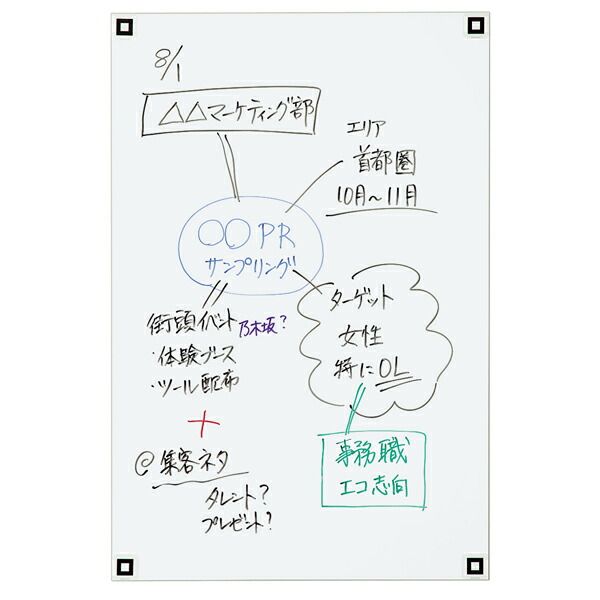 8/1
△△マーケティング部
エリア
首都圏
10月～11月
○○PR
サンプリング
街頭イベント
乃木坂?
・体験ブース
・ツール配布
+
@集客ネタ
タレント?
プレゼント?
ターゲット
女性
特にOL
事務職
エコ志向